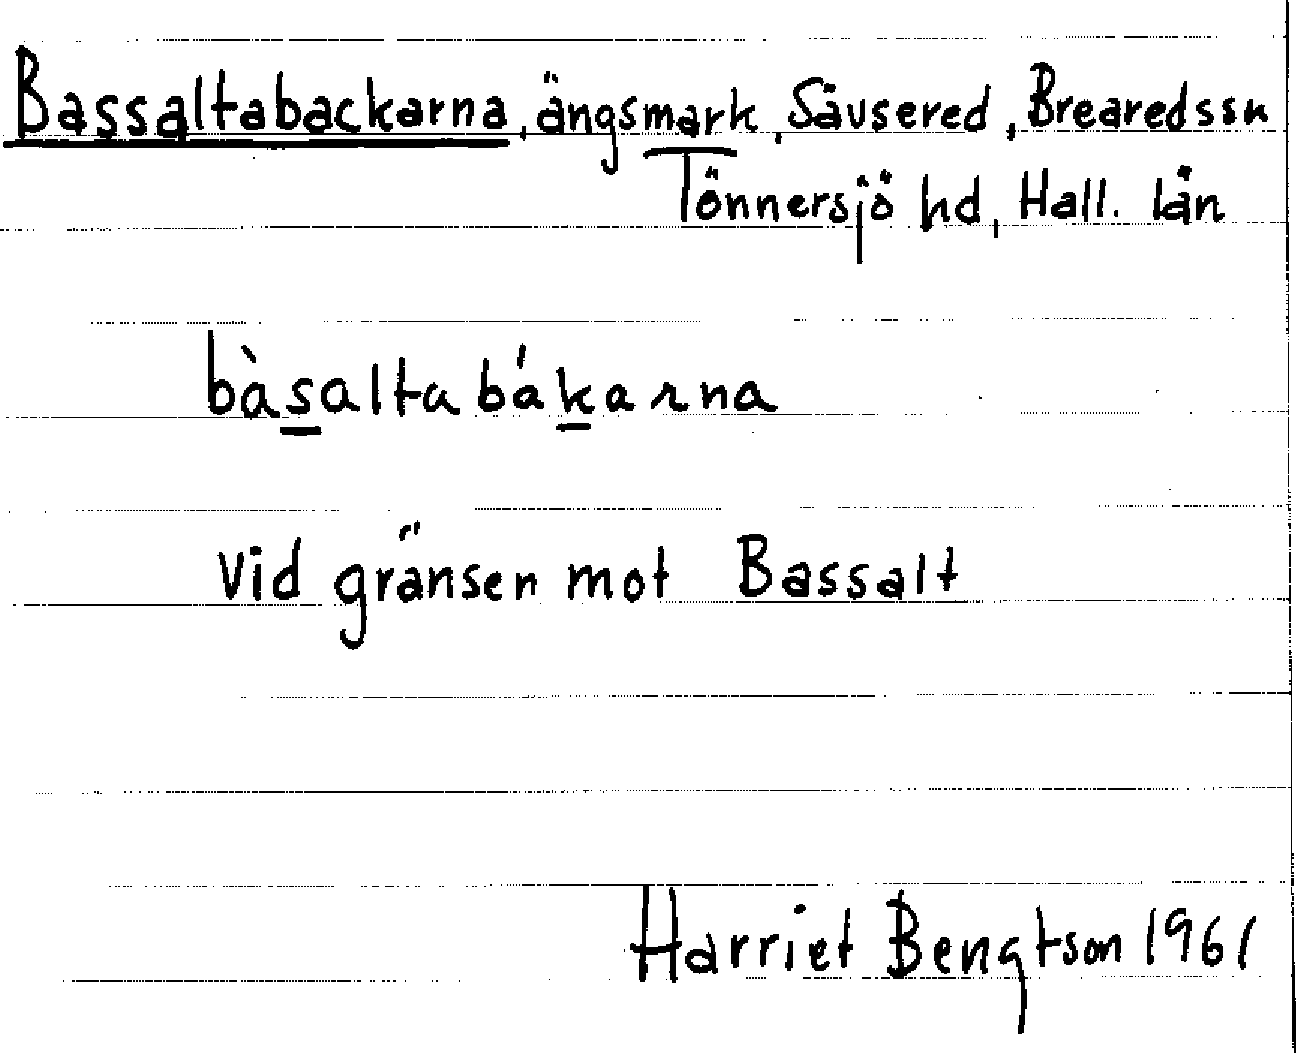 Bassaltabackarna, ängsmark, Sävsered, Brearedssn
Tönnersjö hd, Hall. län
bàsaltabákarna
Vid gränsen mot Bassalt
Harriet Bengtson 1961